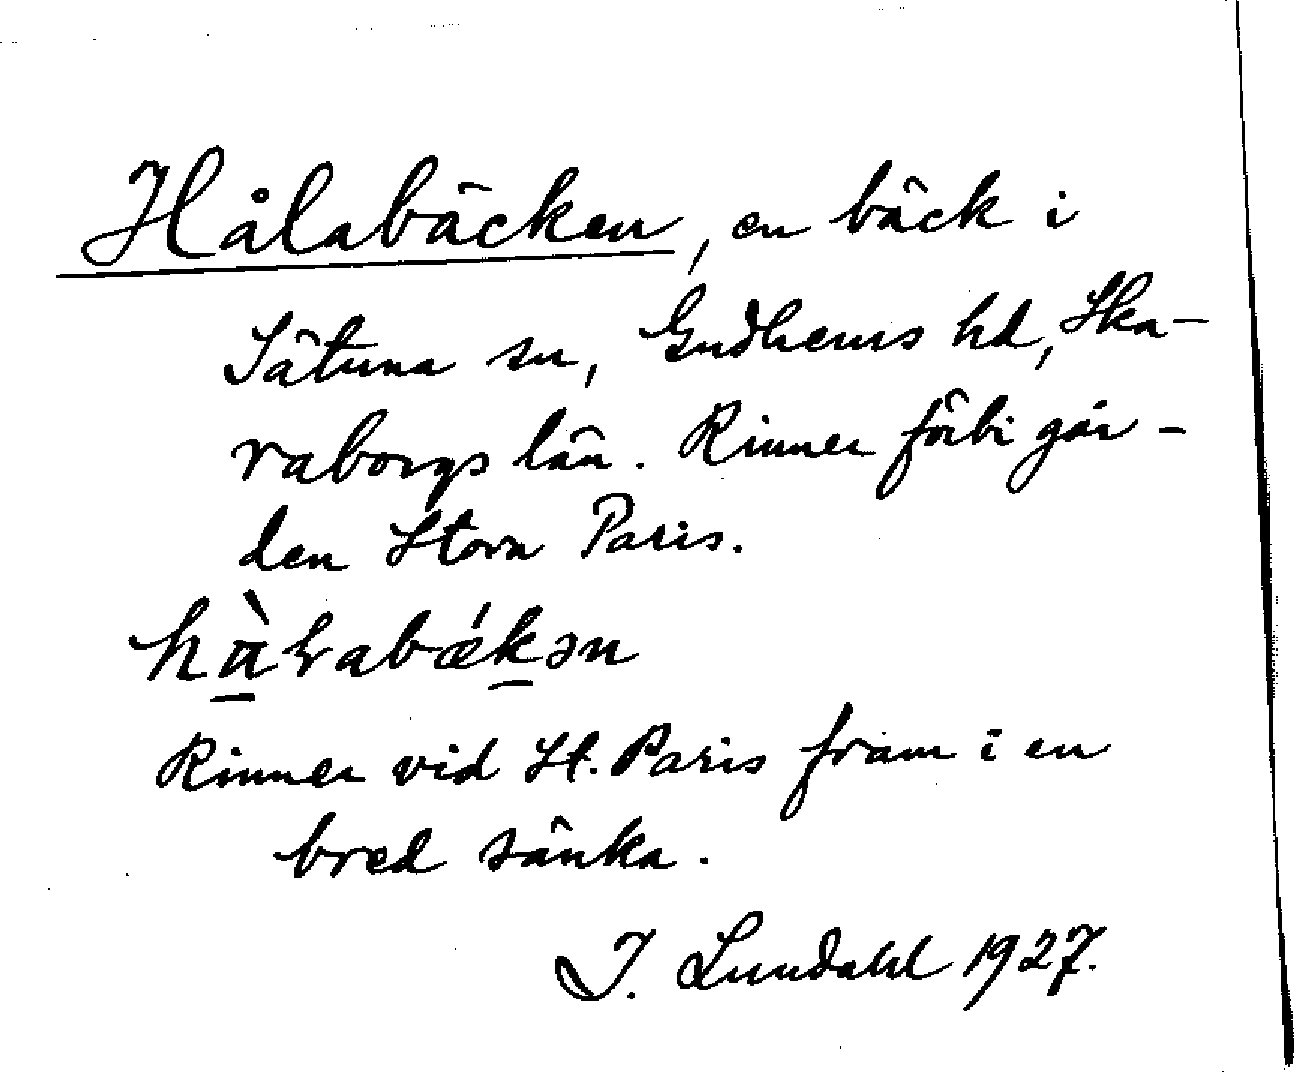 Hålabäcken, en bäck i
Sätuna sn, Gudhems hd, Ska-
raborgs län. Rinner förbi går-
den Stora Paris.
hà̱ɽabǽḵən
Rinner vid St. Paris fram i en
bred sänka.
I. Lundahl 1927.